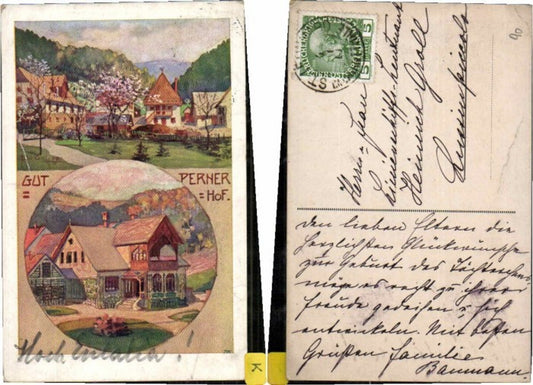 GUT PERNER
= = HOF.
Hoch
5 5
Herrn u. Frau
Linienschiffs-Leutnant
Heinrich
den lieben Eltern die
herzlichsten Glückwünsche
zur Geburt des Töchterchens
möge es recht zu ihrer
Freude gedeihen u. sich
entwickeln. Mit besten
Grüßen Familie
Baumann.
K